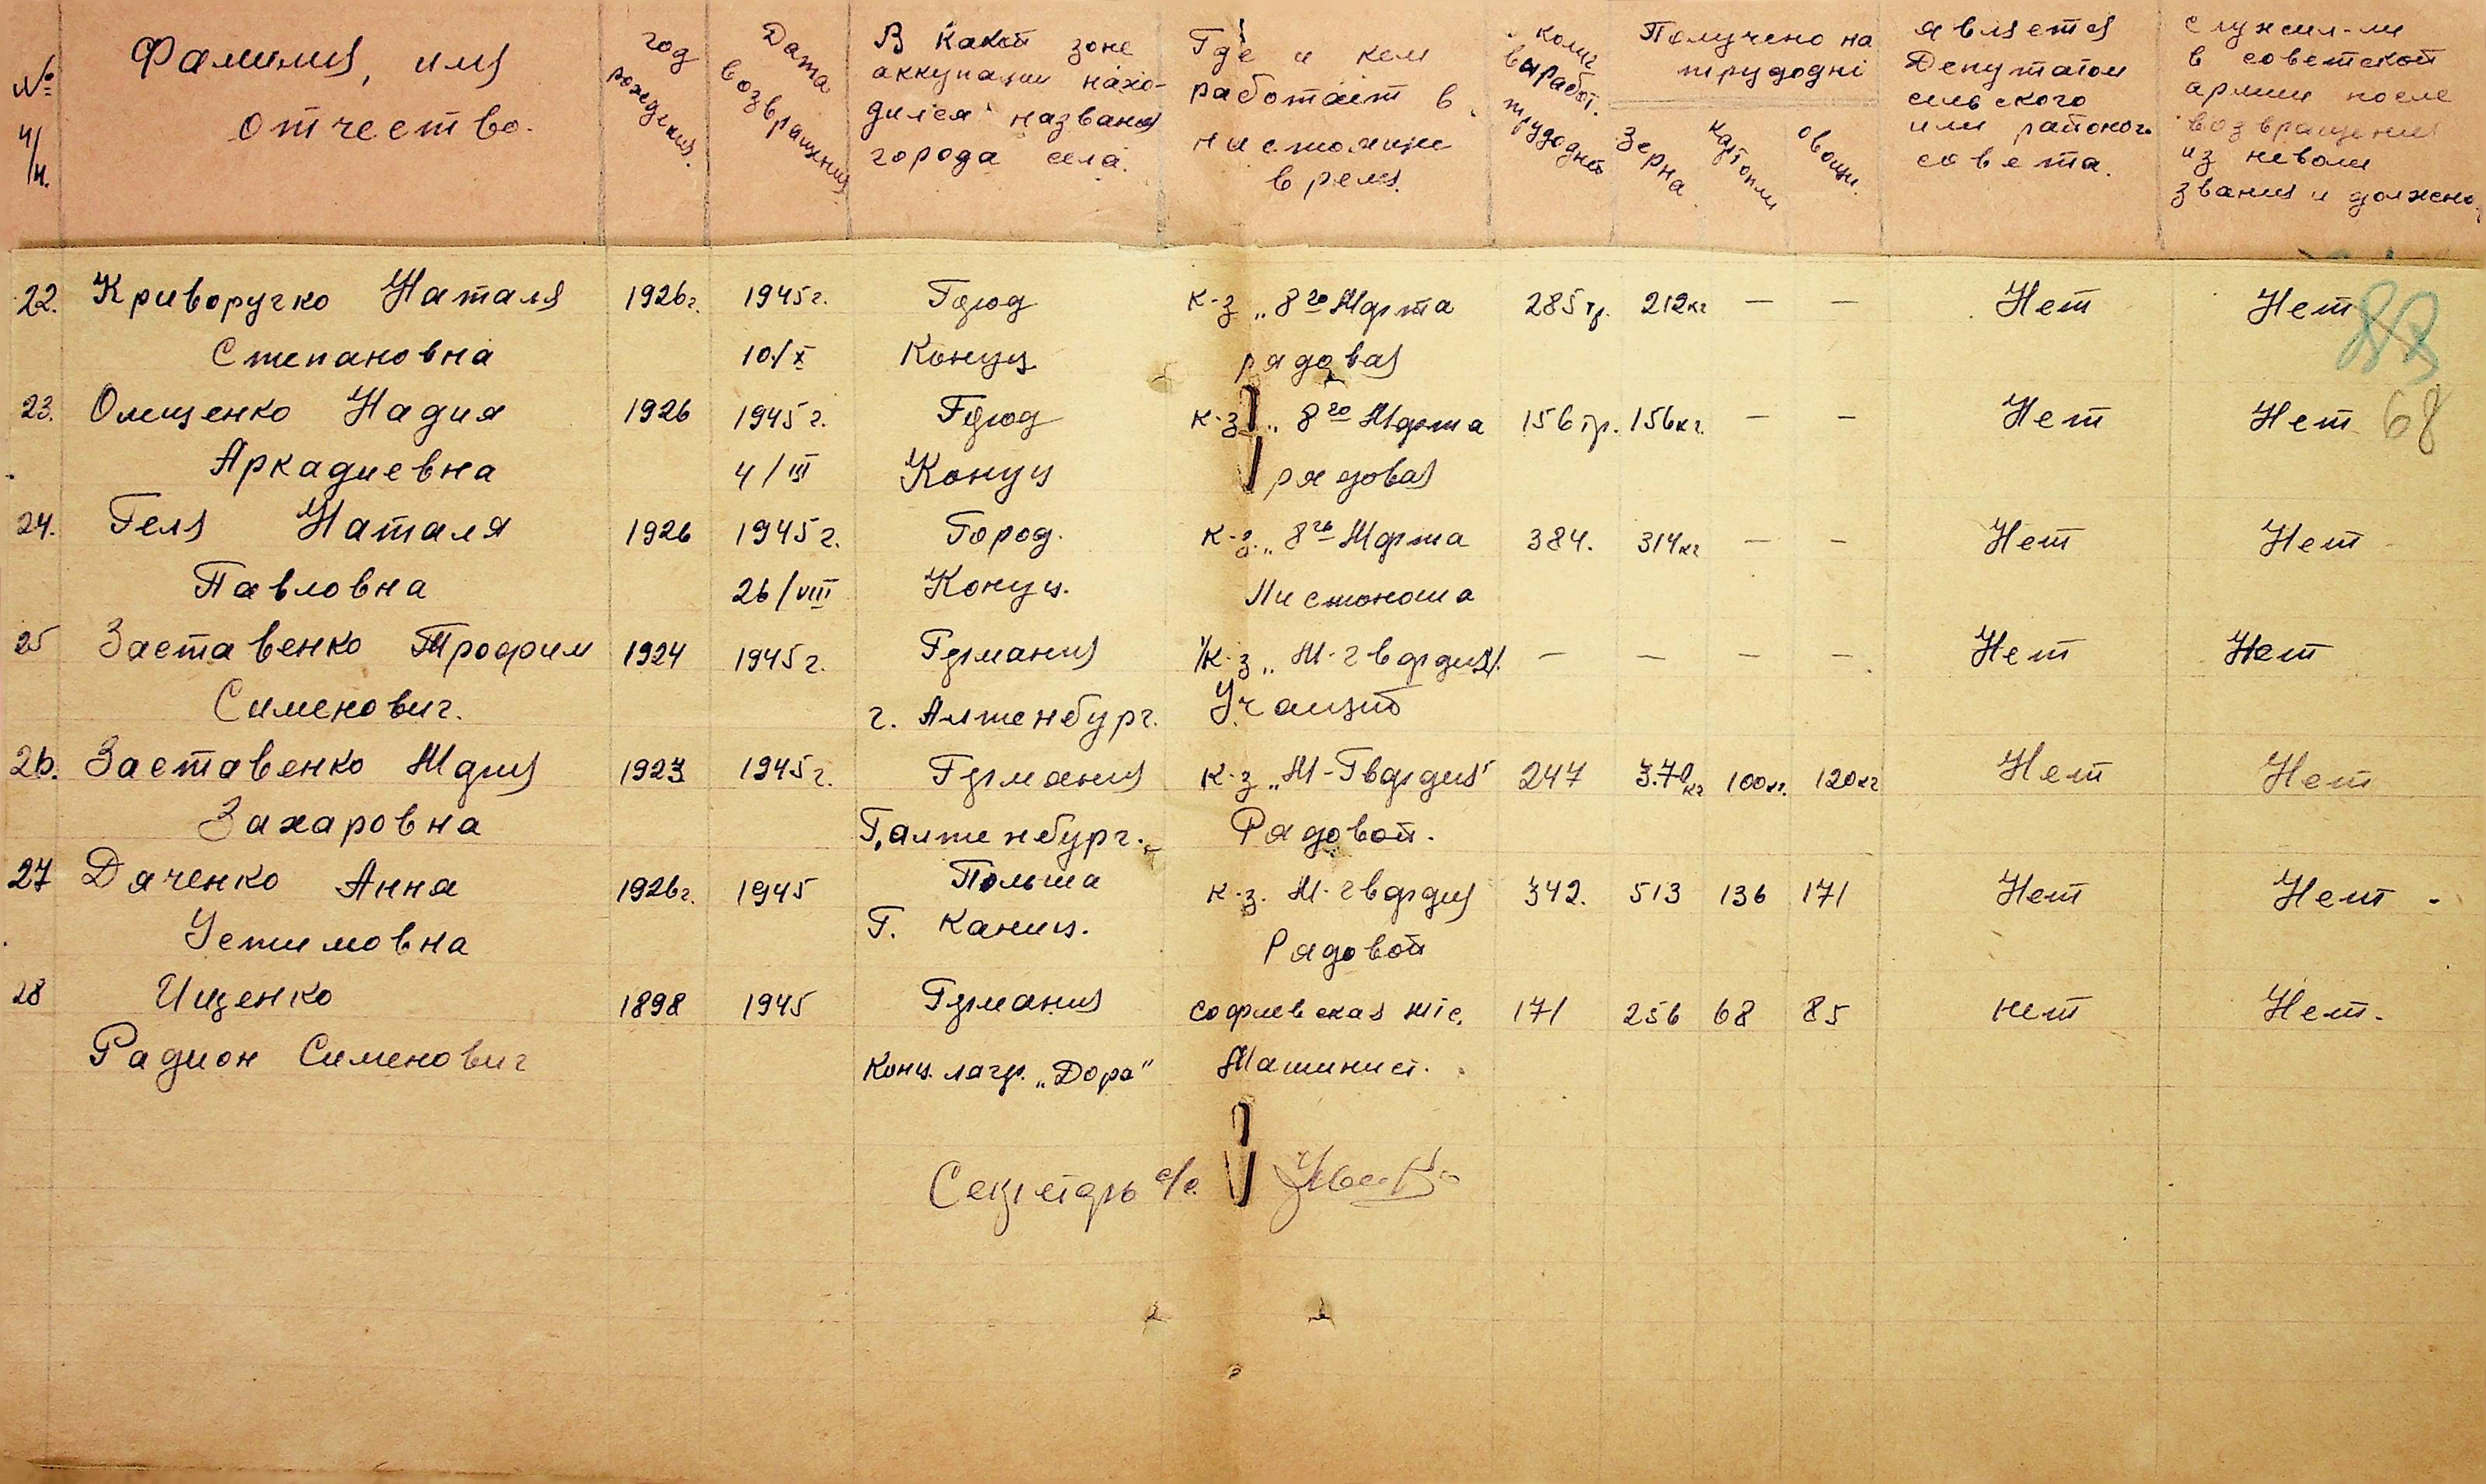 № ч/н.
Фамилия, имя
отчество.
год рождения.
Дата возвращения
В какой зоне
аккупации нахо-
дился название
города села.
Где и кем
работает в
нистоящие
время.
колич
выработ.
трудодней
Получено на
трудодні
Зерна
картопли
овощи.
является
Депутатом
сельского
или районог.
совета.
служил-ли
в советской
армии после
возвращения
из неволи
звания и должено.
22. Криворучко Наталя 1926г. 1945г. Город к-з „8го Марта 285тр. 212кг — — Нет Нет 88
Степановна 10/X Конуц рядовая
23. Омщенко Надия 1926 1945г. Город к-з „8го Марта 156тр. 156кг. — — Нет Нет 68
Аркадиевна 4/III Конуц рядовая
24. Геля Наталя 1926 1945г. Город. к-з „8го Марта 384. 314кг — — Нет Нет
Павловна 26/VIII Конуц. Листоноша
25 Заставенко Трофим 1924 1945г. Германия /к-з „М-гвардия/. — — — — Нет Нет
Сименович. г. Алтенбург. Учащий
26. Заставенко Мария 1923 1945г. Германия к-з „М-Гвардия" 247 3.70кг 100кг. 120кг Нет Нет
Захаровна Г. алтенбург. Рядовой.
27 Дяченко Анна 1926г. 1945 Польша к-з. М-гвардия 342. 513 136 171 Нет Нет
Устимовна Г. Каниц. Рядовой
28 Ищенко 1898 1945 Германия Софиевская мтс. 171 256 68 85 нет Нет.
Радион Сименович Конц. лагр. „Дора" Машинист.
Секретарь с/с.